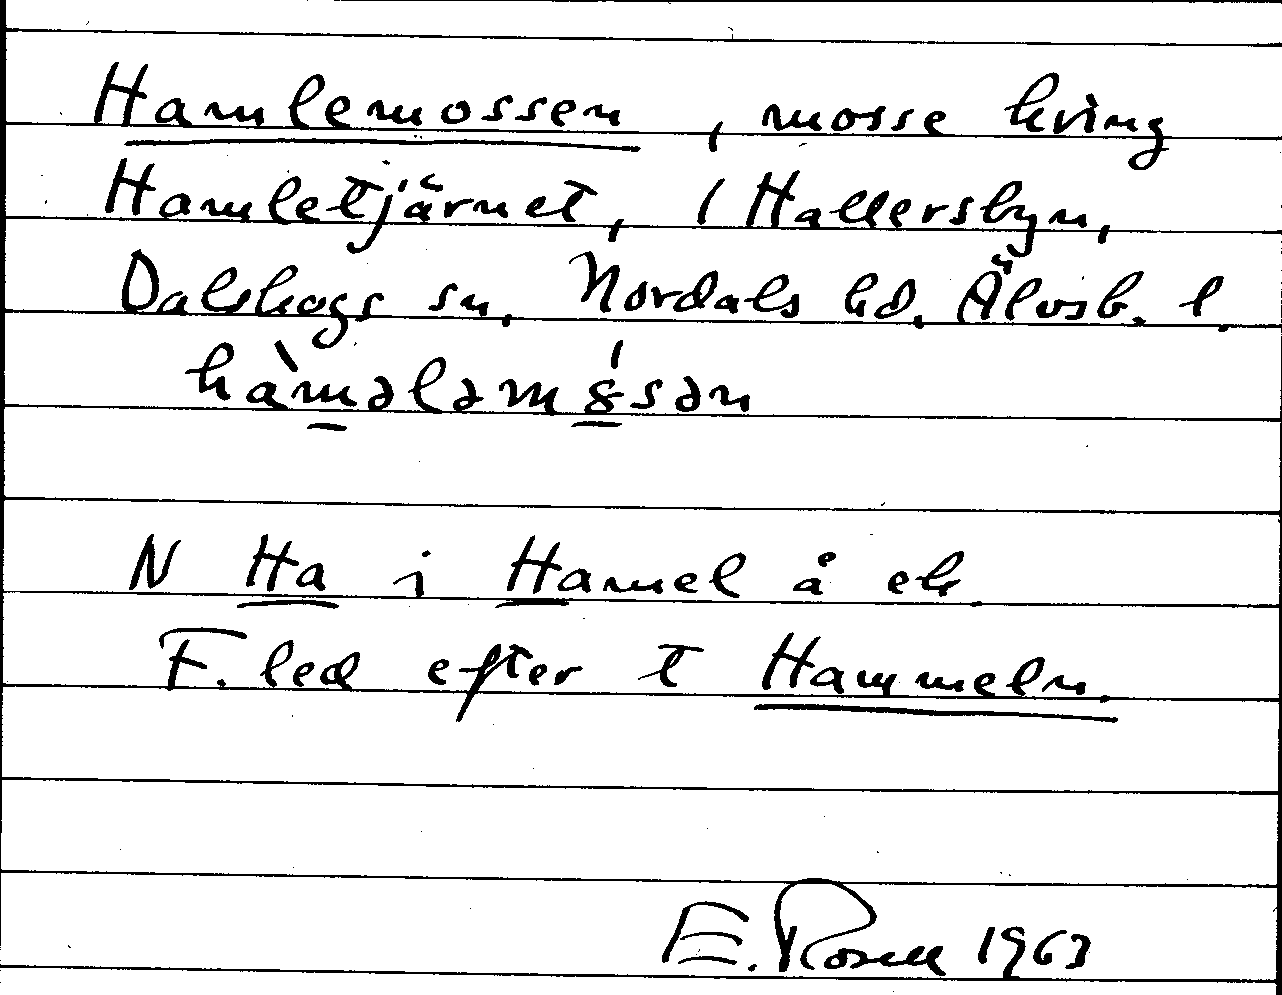 Hamlemossen, mosse kring
Hamletjärnet, i Hallersbyn,
Dalskogs sn, Nordals hd. Älvsb. l.
hàmələm8sən
N Ha i Hamel å ek.
F. led efter t Hammeln.
E. Rosell 1963